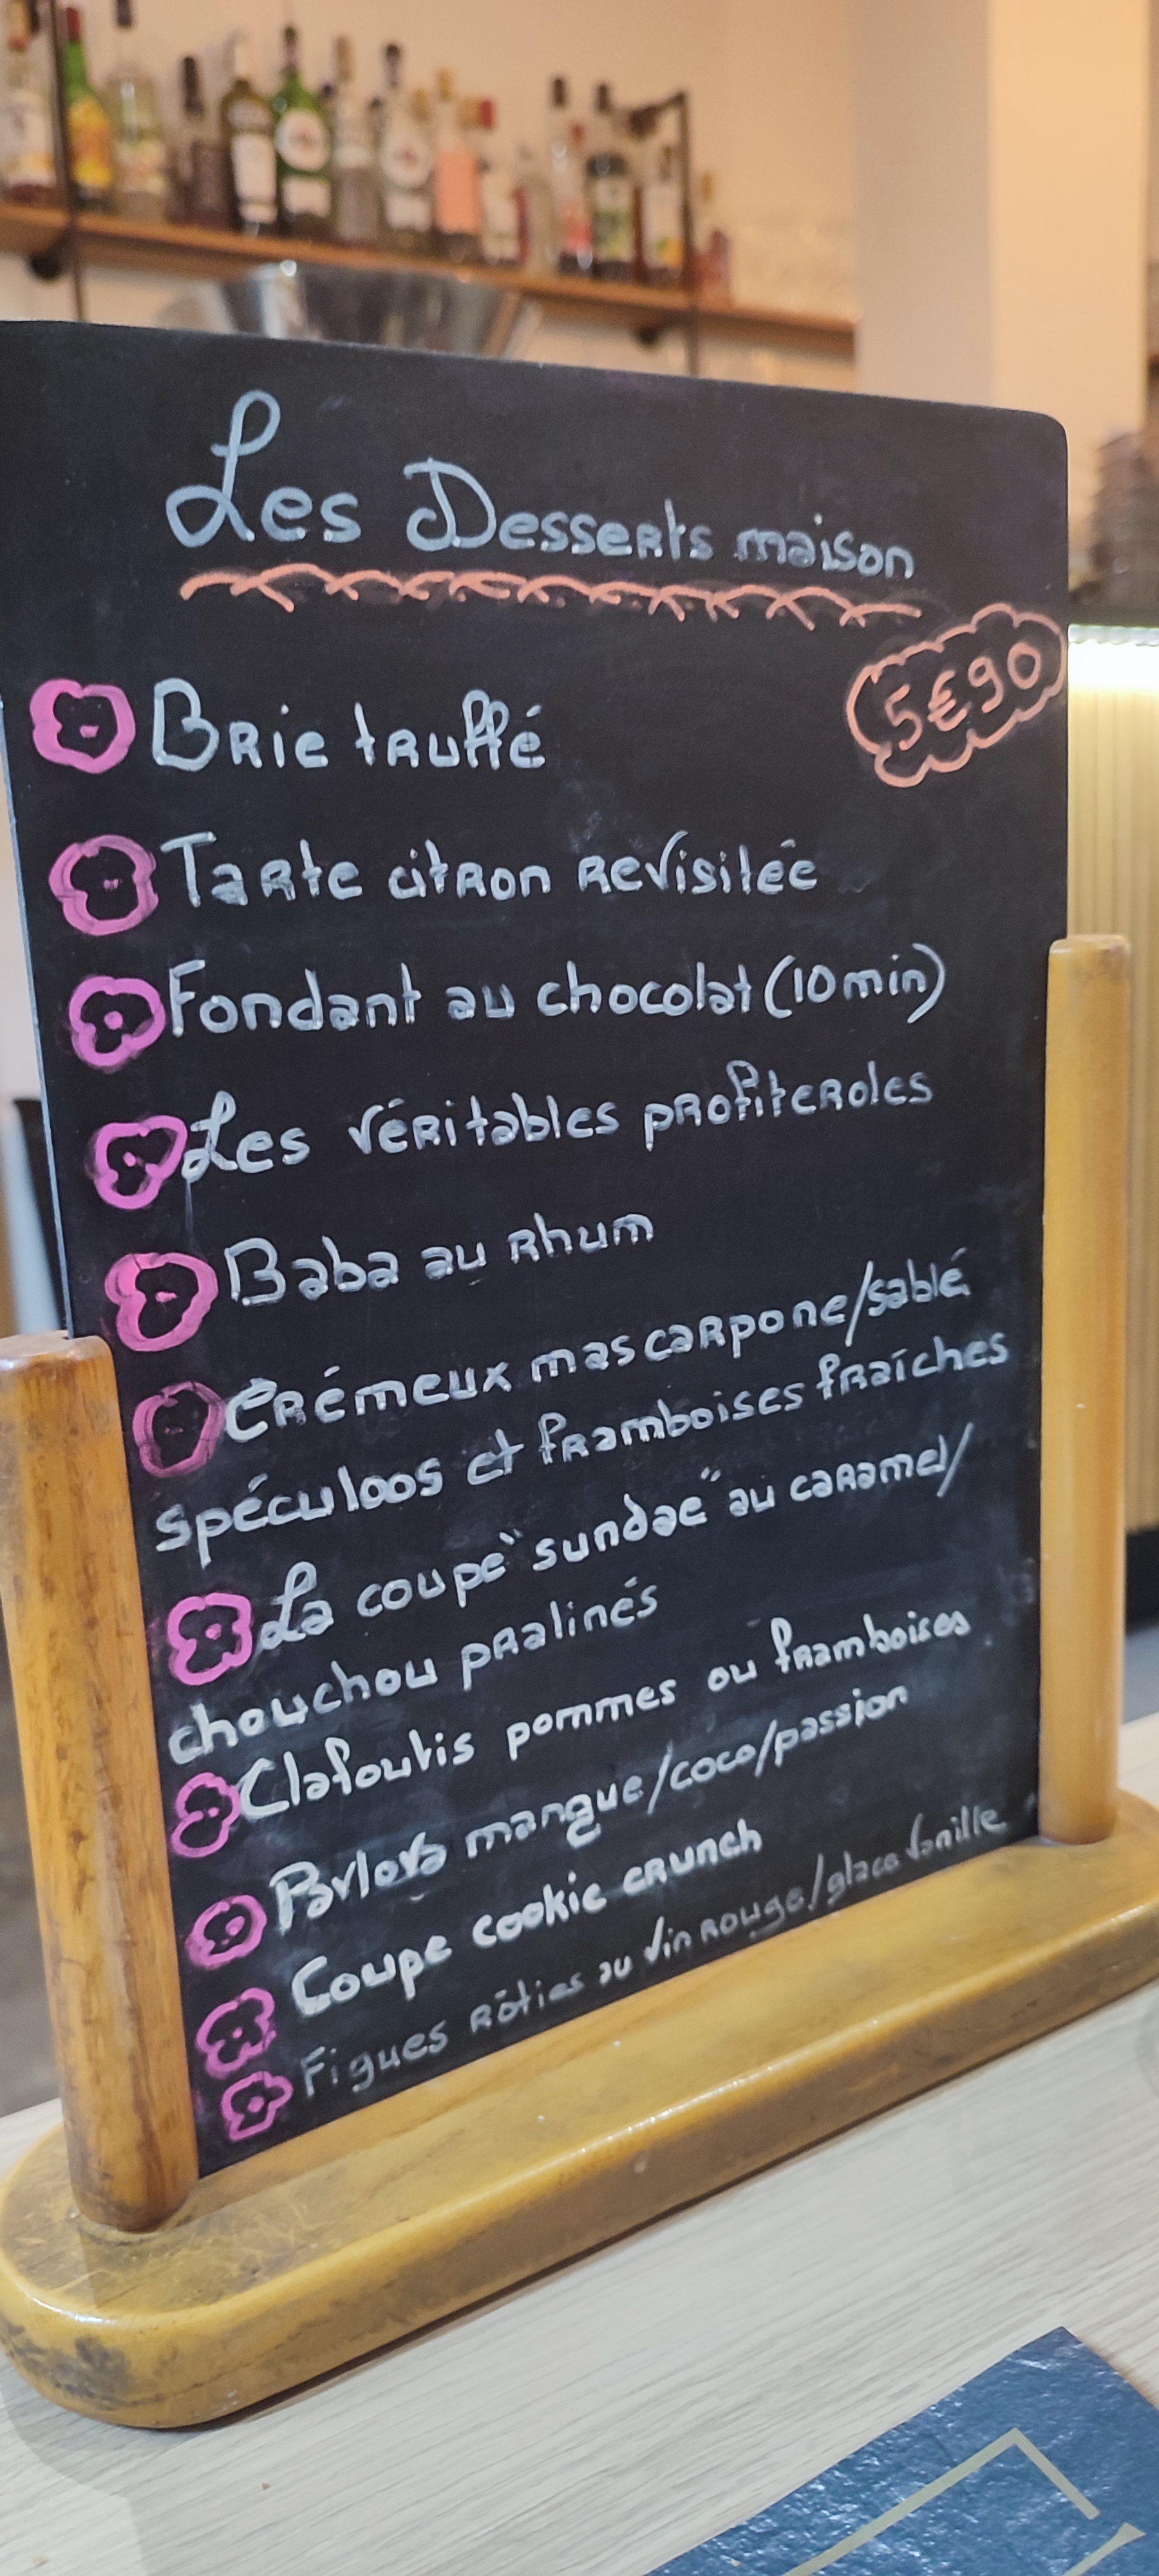 Les Desserts maison
5€90
Brie truffé
Tarte citron revisitée
Fondant au chocolat (10min)
Les véritables profiteroles
Baba au rhum
Crémeux mascarpone/sablé
spéculoos et framboises fraîches
La coupe "sundae" au caramel/
chouchou pralinés
Clafoutis pommes ou framboises
Pavlova mangue/coco/passion
Coupe cookie crunch
Figues rôties au vin rouge/glace vanille